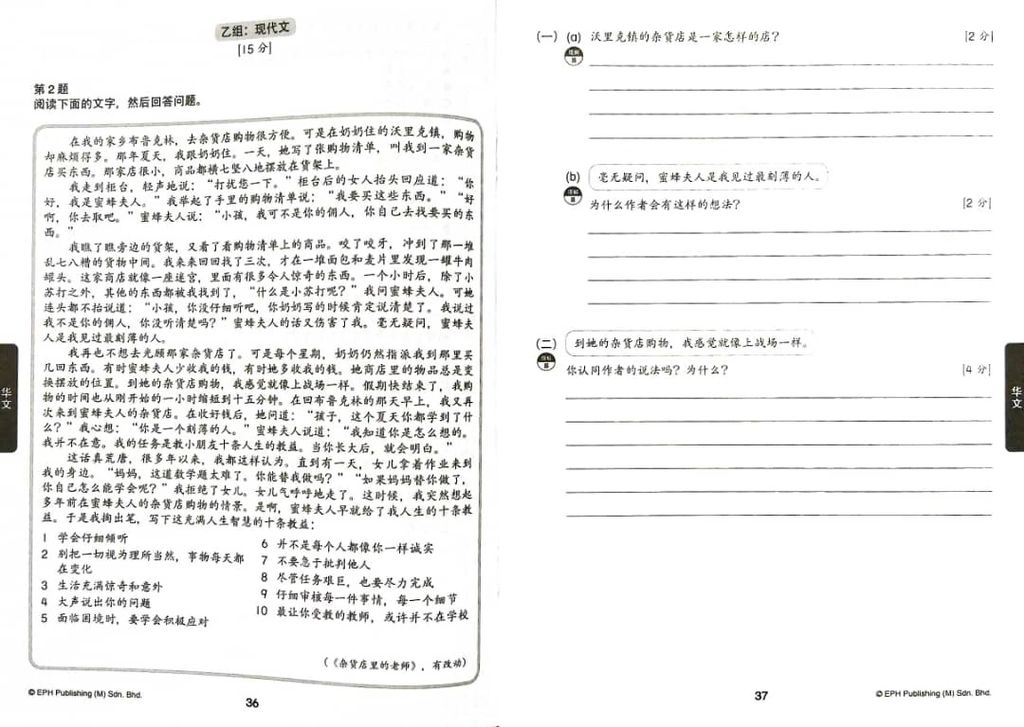 乙组：现代文
[15 分]
第 2 题
阅读下面的文字，然后回答问题。
在我的家乡布鲁克林，去杂货店购物很方便。可是在奶奶住的沃里克镇，购物
却麻烦得多。那年夏天，我跟奶奶住。一天，她写了张购物清单，叫我到一家杂货
店买东西。那家店很小，商品都横七竖八地摆放在货架上。
我走到柜台，轻声地说：“打扰您一下。”柜台后的女人抬头回应道：“你
好，我是蜜蜂夫人。”我举起了手里的购物清单说：“我要买这些东西。”“好
啊，你去取吧。”蜜蜂夫人说：“小孩，我可不是你的佣人，你自己去找要买的东
西。”
我瞧了瞧旁边的货架，又看了看购物清单上的商品。咬了咬牙，冲到了那一堆
乱七八糟的货物中间。我来来回回找了三次，才在一堆面包和麦片里发现一罐牛肉
罐头。这家商店就像一座迷宫，里面有很多令人惊奇的东西。一个小时后，除了小
苏打之外，其他的东西都被我找到了，“什么是小苏打呢？”我问蜜蜂夫人。可她
连头都不抬说道：“小孩，你没仔细听吧，你奶奶写的时候肯定说清楚了。我说过
我不是你的佣人，你没听清楚吗？”蜜蜂夫人的话又伤害了我。毫无疑问，蜜蜂夫
人是我见过最刻薄的人。
我再也不想去光顾那家杂货店了。可是每个星期，奶奶仍然指派我到那里买
几回东西。有时蜜蜂夫人少收我的钱，有时她多收我的钱。她商店里的物品总是变
换摆放的位置。到她的杂货店购物，我感觉就像上战场一样。假期快结束了，我购
物的时间也从刚开始的一小时缩短到十五分钟。在回布鲁克林的那天早上，我又再
次来到蜜蜂夫人的杂货店。在收好钱后，她问道：“孩子，这个夏天你都学到了什
么？”我心想：“你是一个刻薄的人。”蜜蜂夫人说道：“我知道你是怎么想的。
我并不在意。我的任务是教小朋友十条人生的教益。当你长大后，就会明白。”
这话真荒唐，很多年以来，我都这样认为。直到有一天，女儿拿着作业来到
我的身边。“妈妈，这道数学题太难了。你能替我做吗？”“如果妈妈替你做了，
你自己怎么能学会呢？”我拒绝了女儿。女儿气呼呼地走了。这时候，我突然想起
多年前在蜜蜂夫人的杂货店购物的情景。是啊，蜜蜂夫人早就给了我人生的十条教
益。于是我掏出笔，写下这充满人生智慧的十条教益：
1 学会仔细倾听
2 别把一切视为理所当然，事物每天都
在变化
3 生活充满惊奇和意外
4 大声说出你的问题
5 面临困境时，要学会积极应对
6 并不是每个人都像你一样诚实
7 不要急于批判他人
8 尽管任务艰巨，也要尽力完成
9 仔细审核每一件事情，每一个细节
10 最让你受教的教师，或许并不在学校
（《杂货店里的老师》，有改动）
© EPH Publishing (M) Sdn. Bhd.
36
华文
（一） (a) 沃里克镇的杂货店是一家怎样的店？ [2 分]
(b) 毫无疑问，蜜蜂夫人是我见过最刻薄的人。
为什么作者会有这样的想法？ [2 分]
（二） 到她的杂货店购物，我感觉就像上战场一样。
你认同作者的说法吗？为什么？ [4 分]
37
© EPH Publishing (M) Sdn. Bhd.
华文